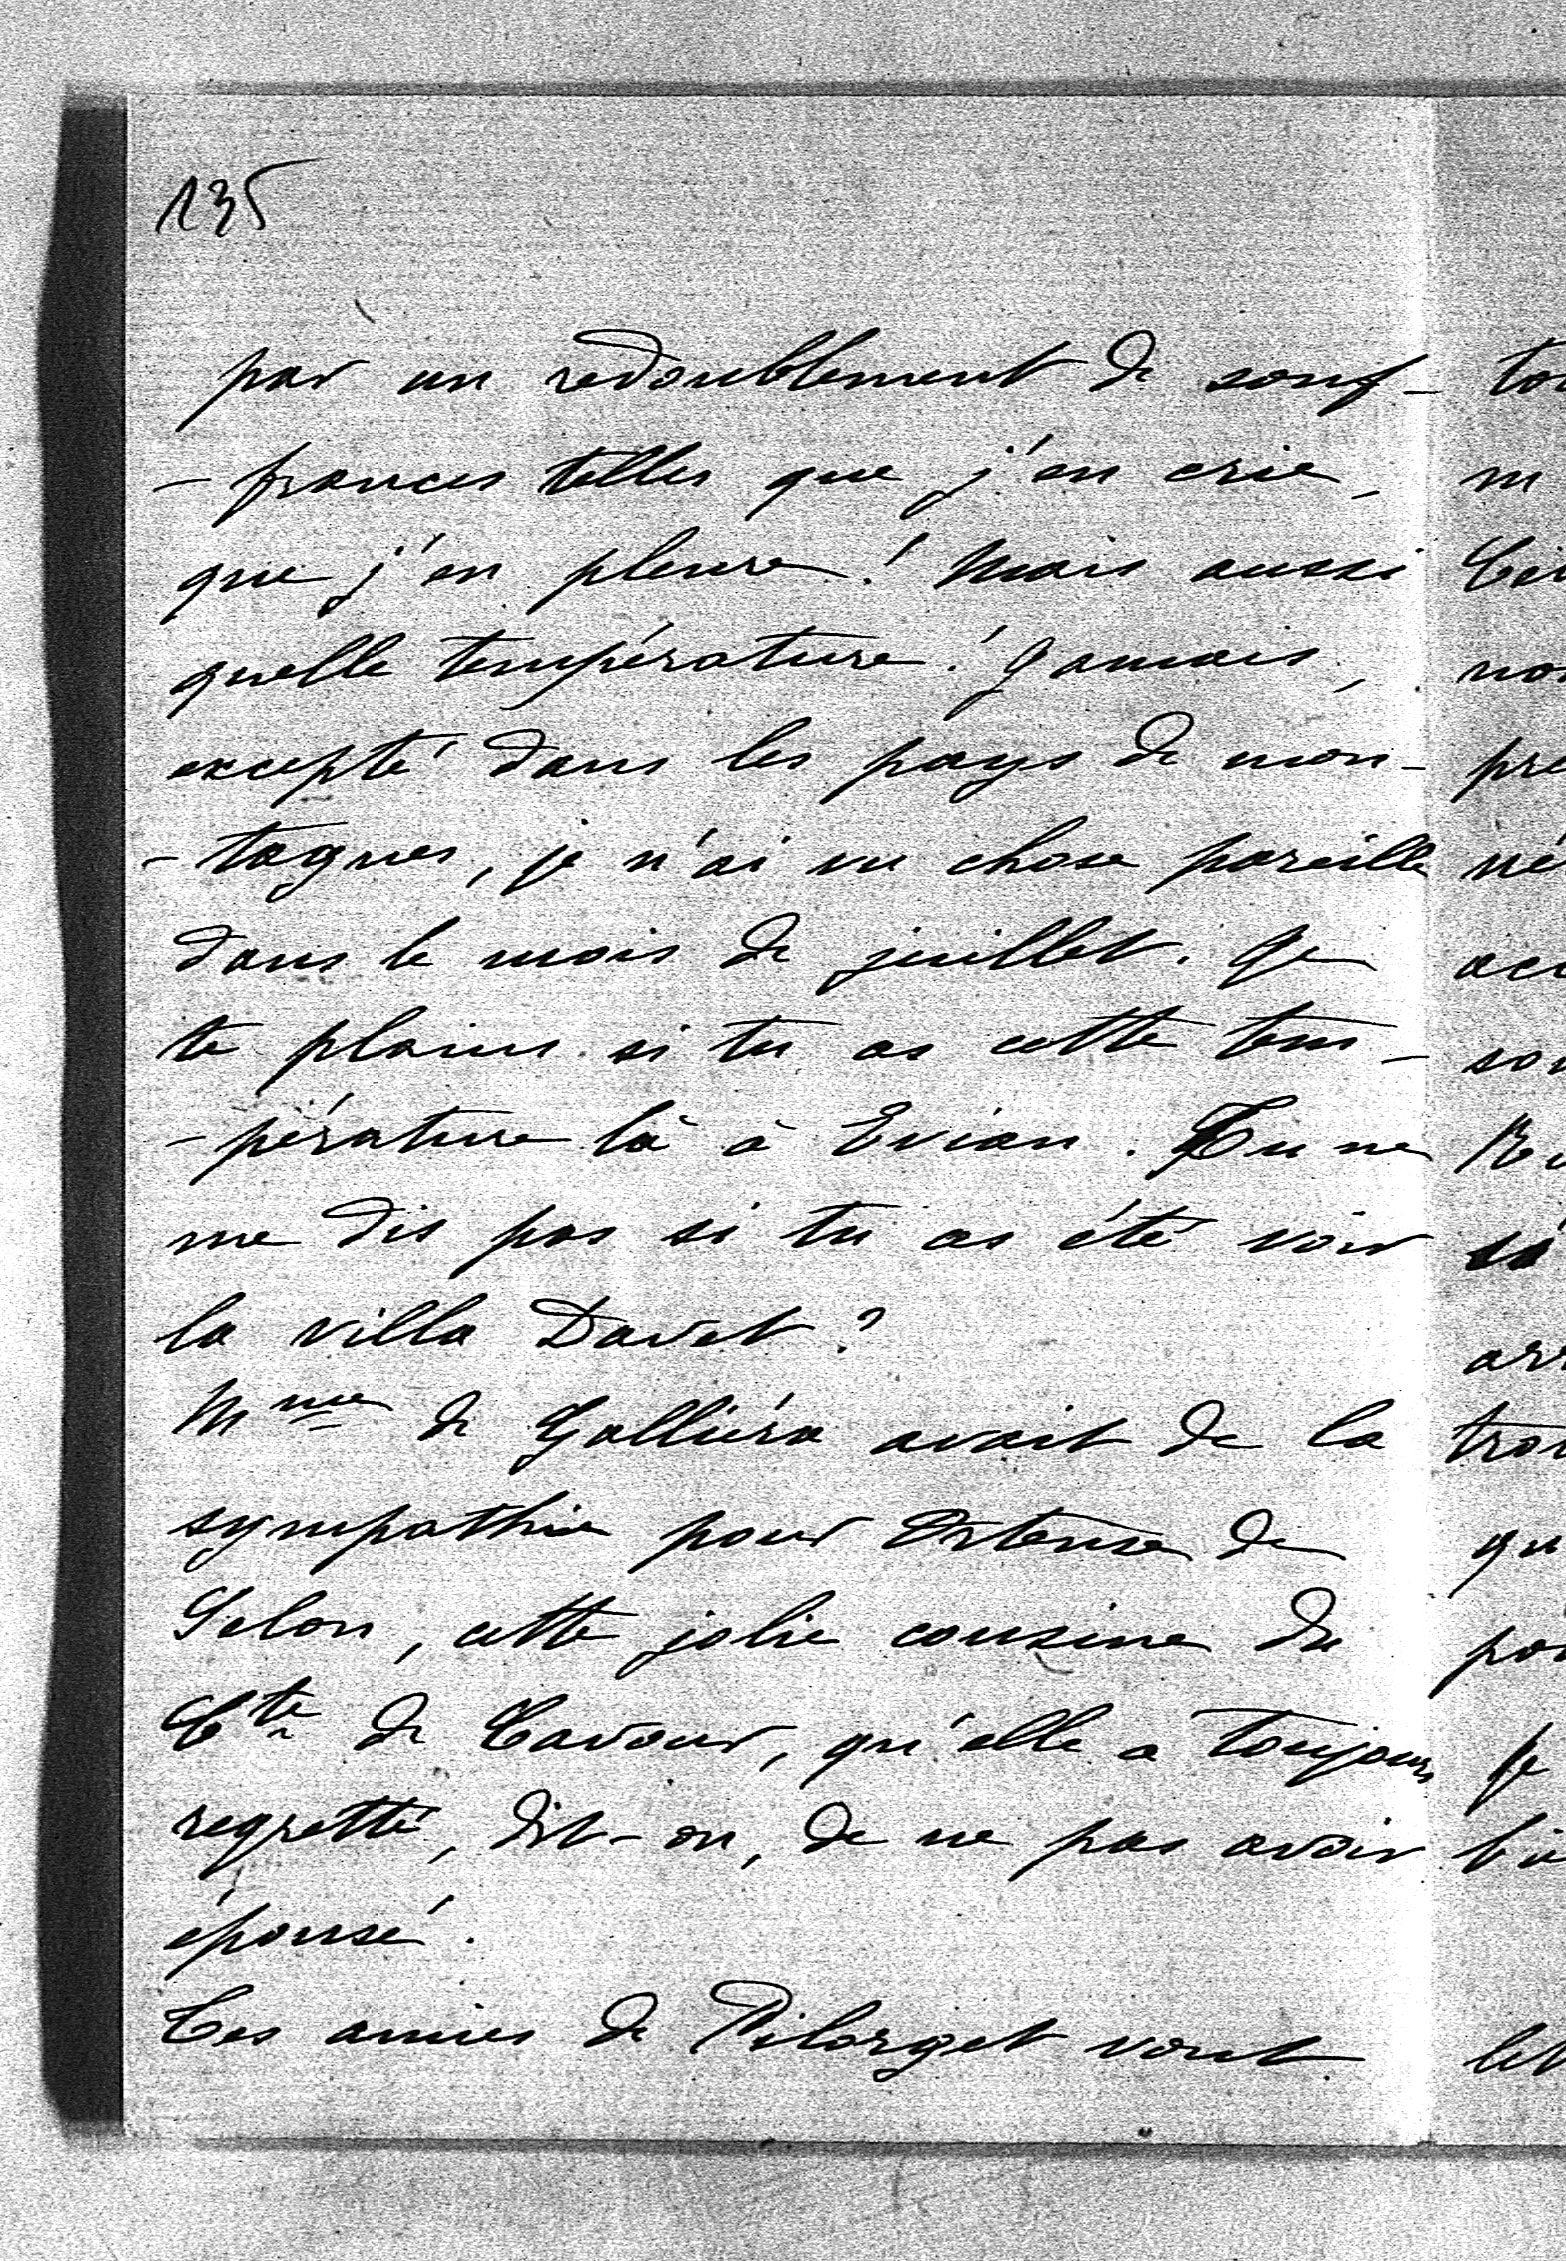 135
par un redoublement de souf-
-frances telles que j'en crie,
que j'en pleure ! Mais aussi
quelle température ! Jamais,
excepté dans les pays de mon-
-tagnes, je n'ai vu chose pareille
dans le mois de juillet. Je
te plains si tu as cette tem-
-pérature là à Evian. Tu ne
me dis pas si tu as été voir
la villa Davet ?
Mme de Galliéra avait de la
sympathie pour Ortense de
Selon, cette jolie cousine du
Cte de Cavour, qu'elle a toujours
regretté, dit-on, de ne pas avoir
épousé.
Ces amies de Pilorget vont